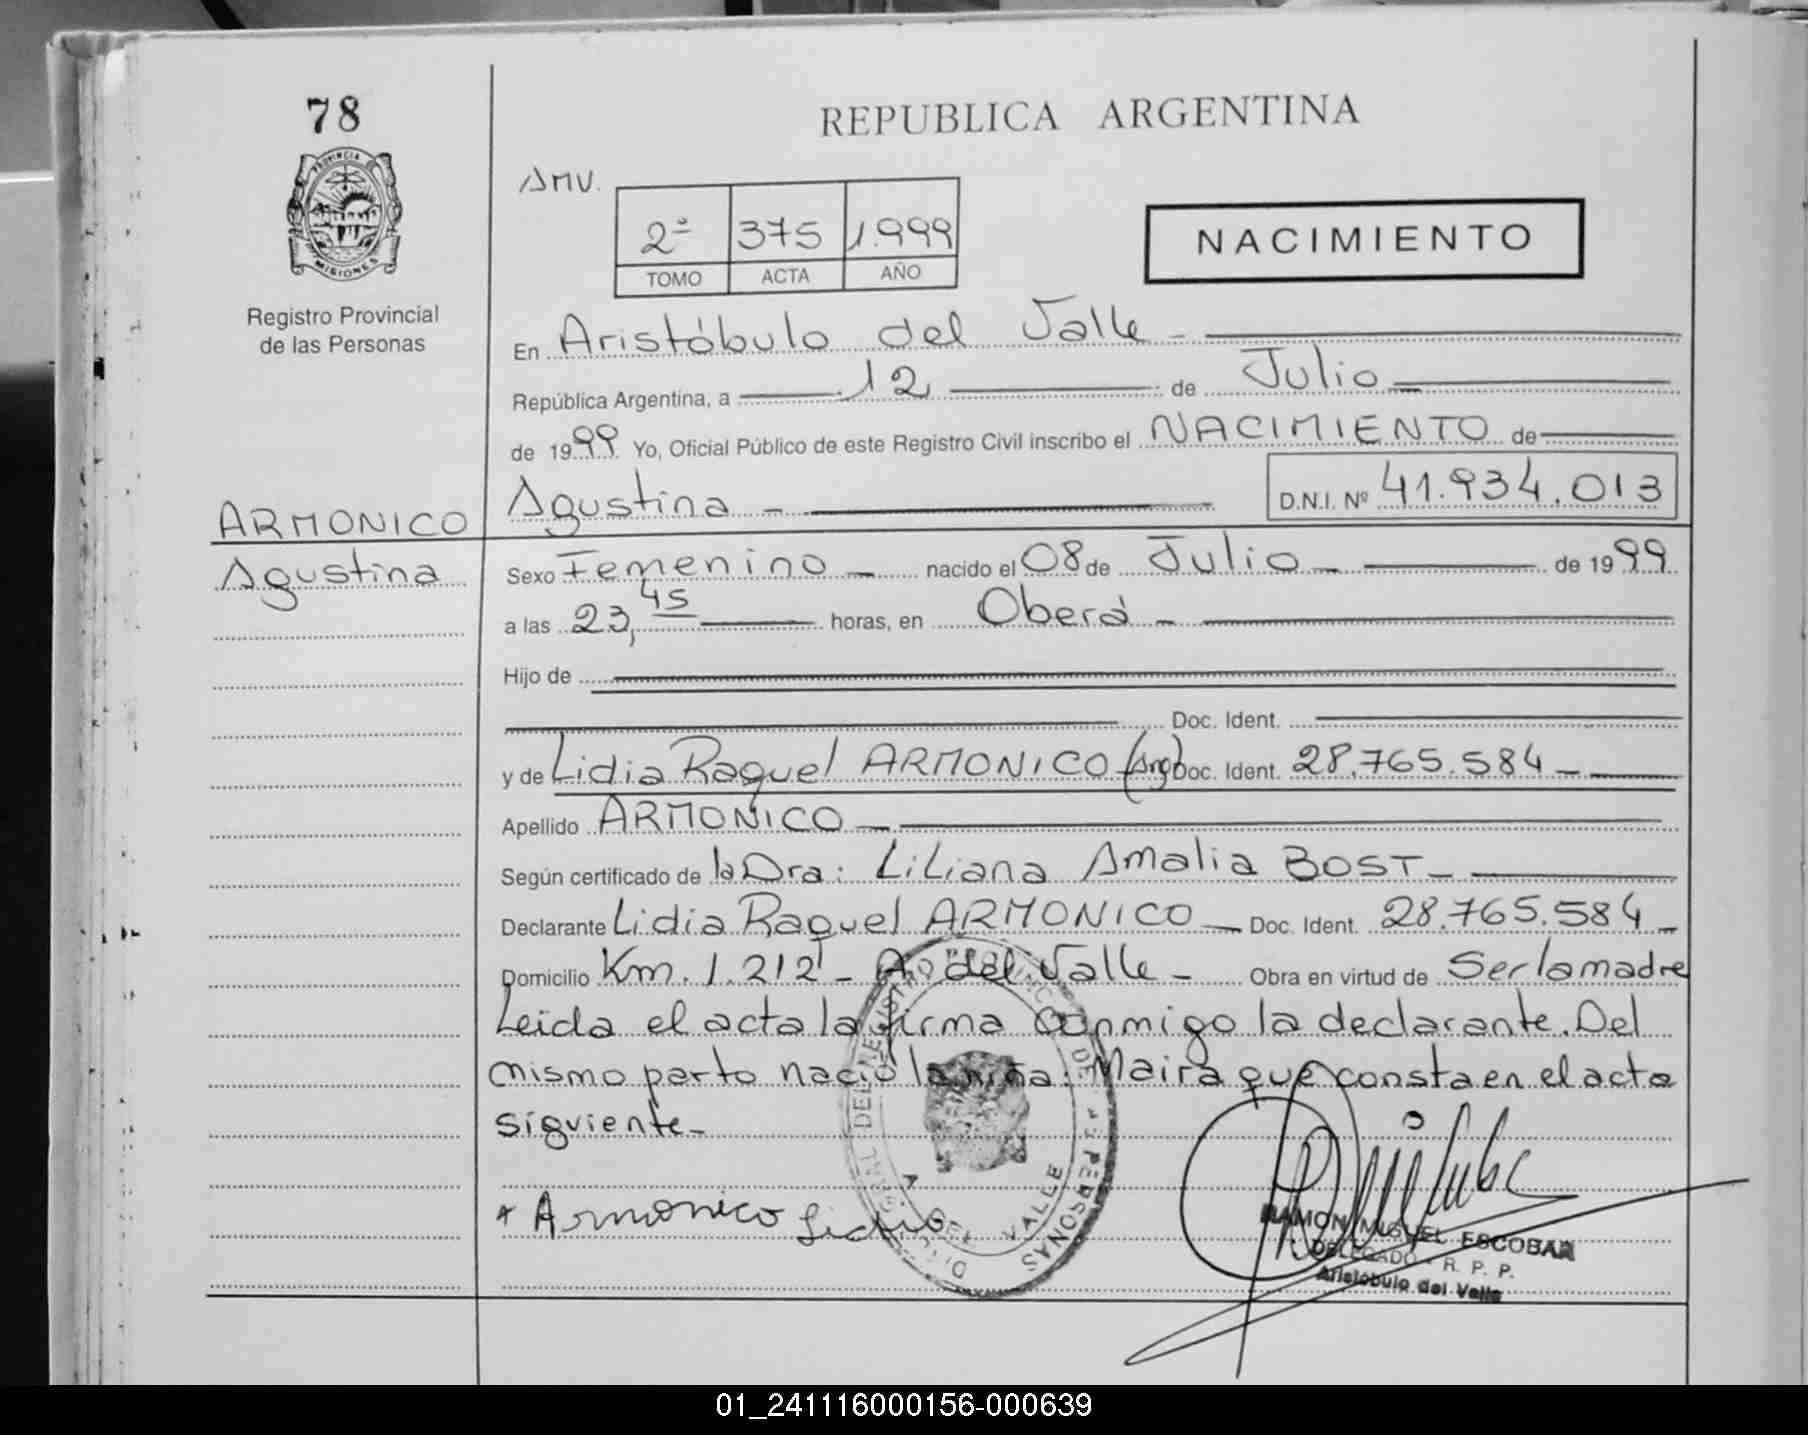 78
REPUBLICA ARGENTINA
PROVINCIA
MISIONES
Registro Provincial
de las Personas
AMV.
2º 375 1.999
TOMO ACTA AÑO
NACIMIENTO
En Aristóbulo del Valle -
República Argentina, a 12 de Julio
de 1999 Yo, Oficial Público de este Registro Civil inscribo el NACIMIENTO de
Agustina - D.N.I. Nº 41.934.013
ARMONICO
Agustina
Sexo Femenino nacido el 08 de Julio - de 1999
a las 23,45 horas, en Oberá -
Hijo de
Doc. Ident.
y de Lidia Raquel ARMONICO (Arg) Doc. Ident. 28.765.584 -
Apellido ARMONICO -
Según certificado de la Dra: Liliana Amalia BOST -
Declarante Lidia Raquel ARMONICO - Doc. Ident. 28.765.584 -
Domicilio Km. 1.212 - A. del Valle - Obra en virtud de Ser la madre
Leida el acta la firma conmigo la declarante. Del
mismo parto nació la niña: Maira que consta en el acta
siguiente -
Armonico Lidia
A. DEL VALLE
RAMON MIGUEL ESCOBAR
DELEGADO - R. P. P.
Aristóbulo del Valle
01_241116000156-000639